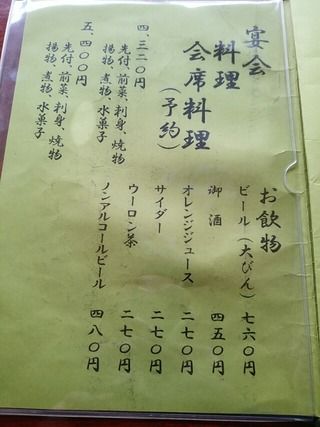 宴会
料理
会席料理
(予約)
四、三二〇円
先付、前菜、刺身、焼物
揚物、煮物、水菓子
五、四〇〇円
先付、前菜、刺身、焼物
揚物、煮物、水菓子
お飲物
ビール(大びん) 七六〇円
御酒 四五〇円
オレンジジュース 二七〇円
サイダー 二七〇円
ウーロン茶 二七〇円
ノンアルコールビール 四八〇円